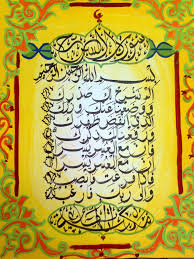 سورة الانشراح
بسم الله الرحمن الرحيم
ألم نشرح لك صدرك
ووضعنا عنك وزرك
الذي أنقض ظهرك
ورفعنا لك ذكرك
فإن مع العسر يسرا
إن مع العسر يسرا
فإذا فرغت فانصب
وإلى ربك فارغب